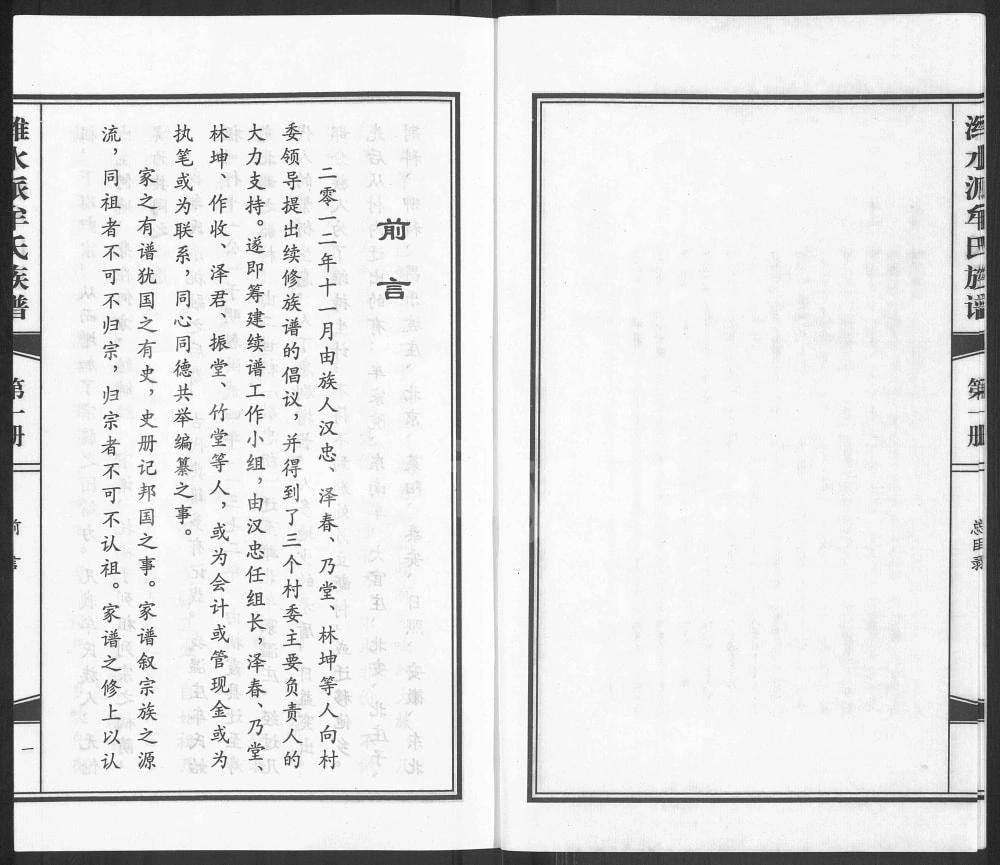 潍水派牟氏族谱
第一册
总目录
前言
二零一二年十一月由族人汉忠、泽春、乃堂、林坤等人向村
委领导提出续修族谱的倡议，并得到了三个村委主要负责人的
大力支持。遂即筹建续谱工作小组，由汉忠任组长，泽春、乃堂、
林坤、作收、泽君、振堂、竹堂等人，或为会计或管现金或为
执笔或为联系，同心同德共举编纂之事。
家之有谱犹国之有史，史册记邦国之事。家谱叙宗族之源
流，同祖者不可不归宗，归宗者不可不认祖。家谱之修上以认
潍水派牟氏族谱
第一册
前言
一